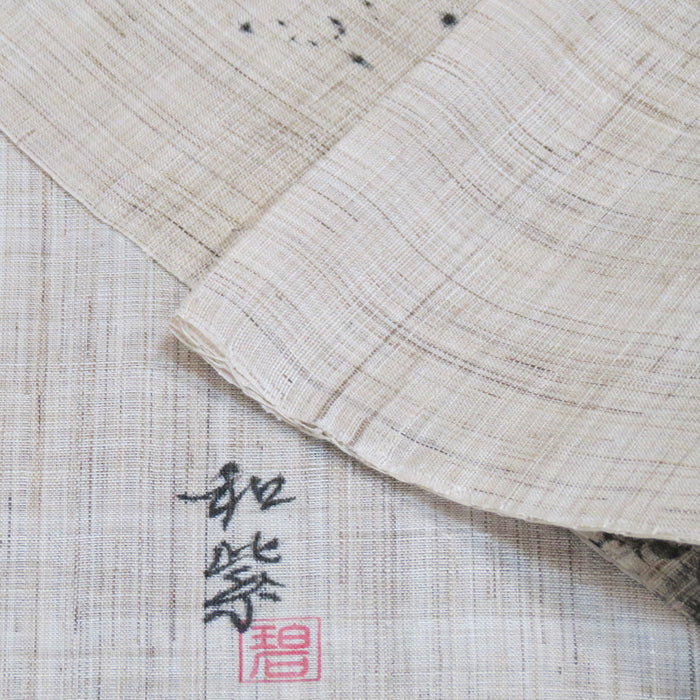 和紫
碧